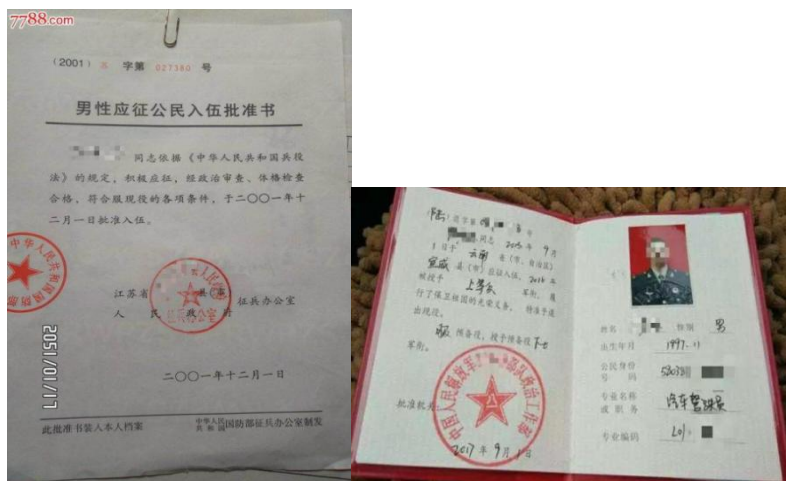 7788.com
(2001) 苏 字第 027380 号
男性应征公民入伍批准书
同志依据《中华人民共和国兵役
法》的规定，积极应征，经政治审查、体格检查
合格，符合服现役的各项条件，于二〇〇一年十
二月一日批准入伍。
中华人民共和国国防部
江苏省 县(市) 征兵办公室
人民政府
二〇〇一年十二月一日
2051/01/17
此批准书装入本人档案
中华人民共和国 国防部征兵办公室制发
陆 退字第 号
同志 2015 年 9 月
1 日于 云南 省(市、自治区)
宣威 县(市)应征入伍。2016 年
被授予 上等兵 军衔，履
行了保卫祖国的光荣义务，特准予退
出现役。
服 预备役，授予预备役 下士
军衔。
批准机关
中国人民解放军 部队政治工作部
2017 年 9 月 1 日
姓名 性别 男
出生年月 1997.11
公民身份
号码
专业名称
或职务 汽车驾驶员
专业编码